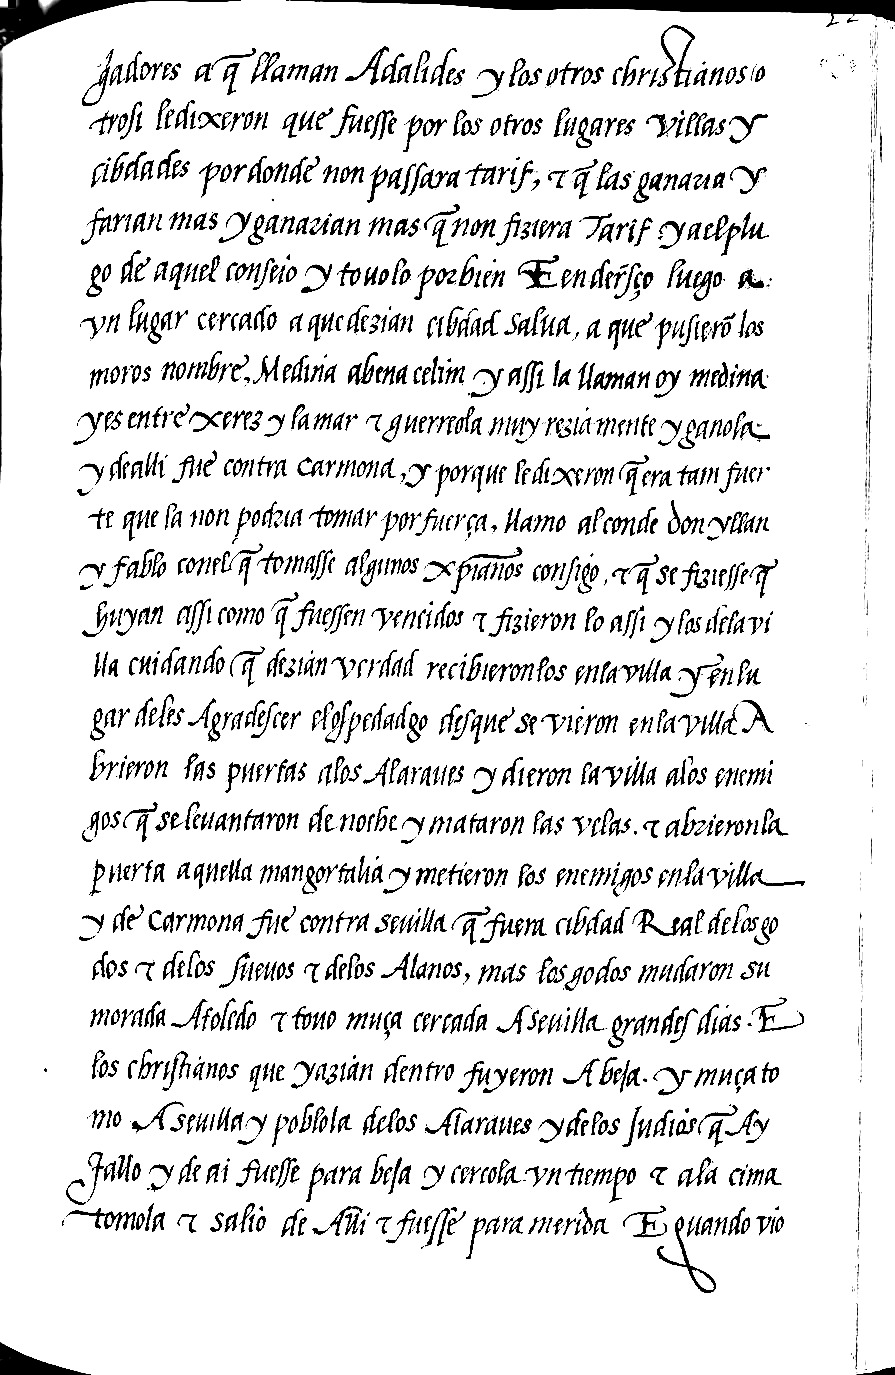 22
Jadores a q̃ llaman Adalides y los otros christianos o
trosi le dixeron que fuesse por los otros lugares villas y
çibdades por donde non passara tarif, τ q̃ las ganaria y
farian mas y ganarian mas q̃ non fiziera Tarif y a el plu
go de aquel conseio y touolo por bien E enderẽsço luego a
vn lugar cercado a que dezian çibdad Salua, a que pusierõ los
moros nombre, Medina abena celim y assi la llaman oy medina
y es entre xerez y la mar τ guerreola muy rezia mente y ganola
y de alli fue contra Carmona, y porque le dixeron q̃ era tam fuer
te que la non podria tomar por fuerça, llamo al conde don yllan
y fablo con el q̃ tomasse algunos xp̃ianos consigo, τ q̃ se fiziesse q̃
huyan assi como q̃ fuessen vencidos τ fizieron lo assi y los de la vi
lla cuidando q̃ dezian verdad recibieronlos en la villa y en lu
gar de les Agradescer el ospedadgo desque se vieron en la villa A
brieron las puertas a los Alaraues y dieron la villa a los enemi
gos q̃ se leuantaron de noche y mataron las velas. τ abrieron la
puerta aquella mangortalia y metieron los enemigos en la villa
y de Carmona fue contra seuilla q̃ fuera cibdad Real de los go
dos τ de los sueuos τ de los Alanos, mas los godos mudaron su
morada A toledo τ touo muça cercada A seuilla grandes dias. E
los christianos que yazian dentro fuyeron A beja. y muça to
mo A seuilla y poblola de los Alaraues y de los Judios q̃ Ay
Jallo y de ai fuesse para beja y cercola vn tiempo τ a la cima
tomola τ salio de Alli τ fuesse para merida E quando vio